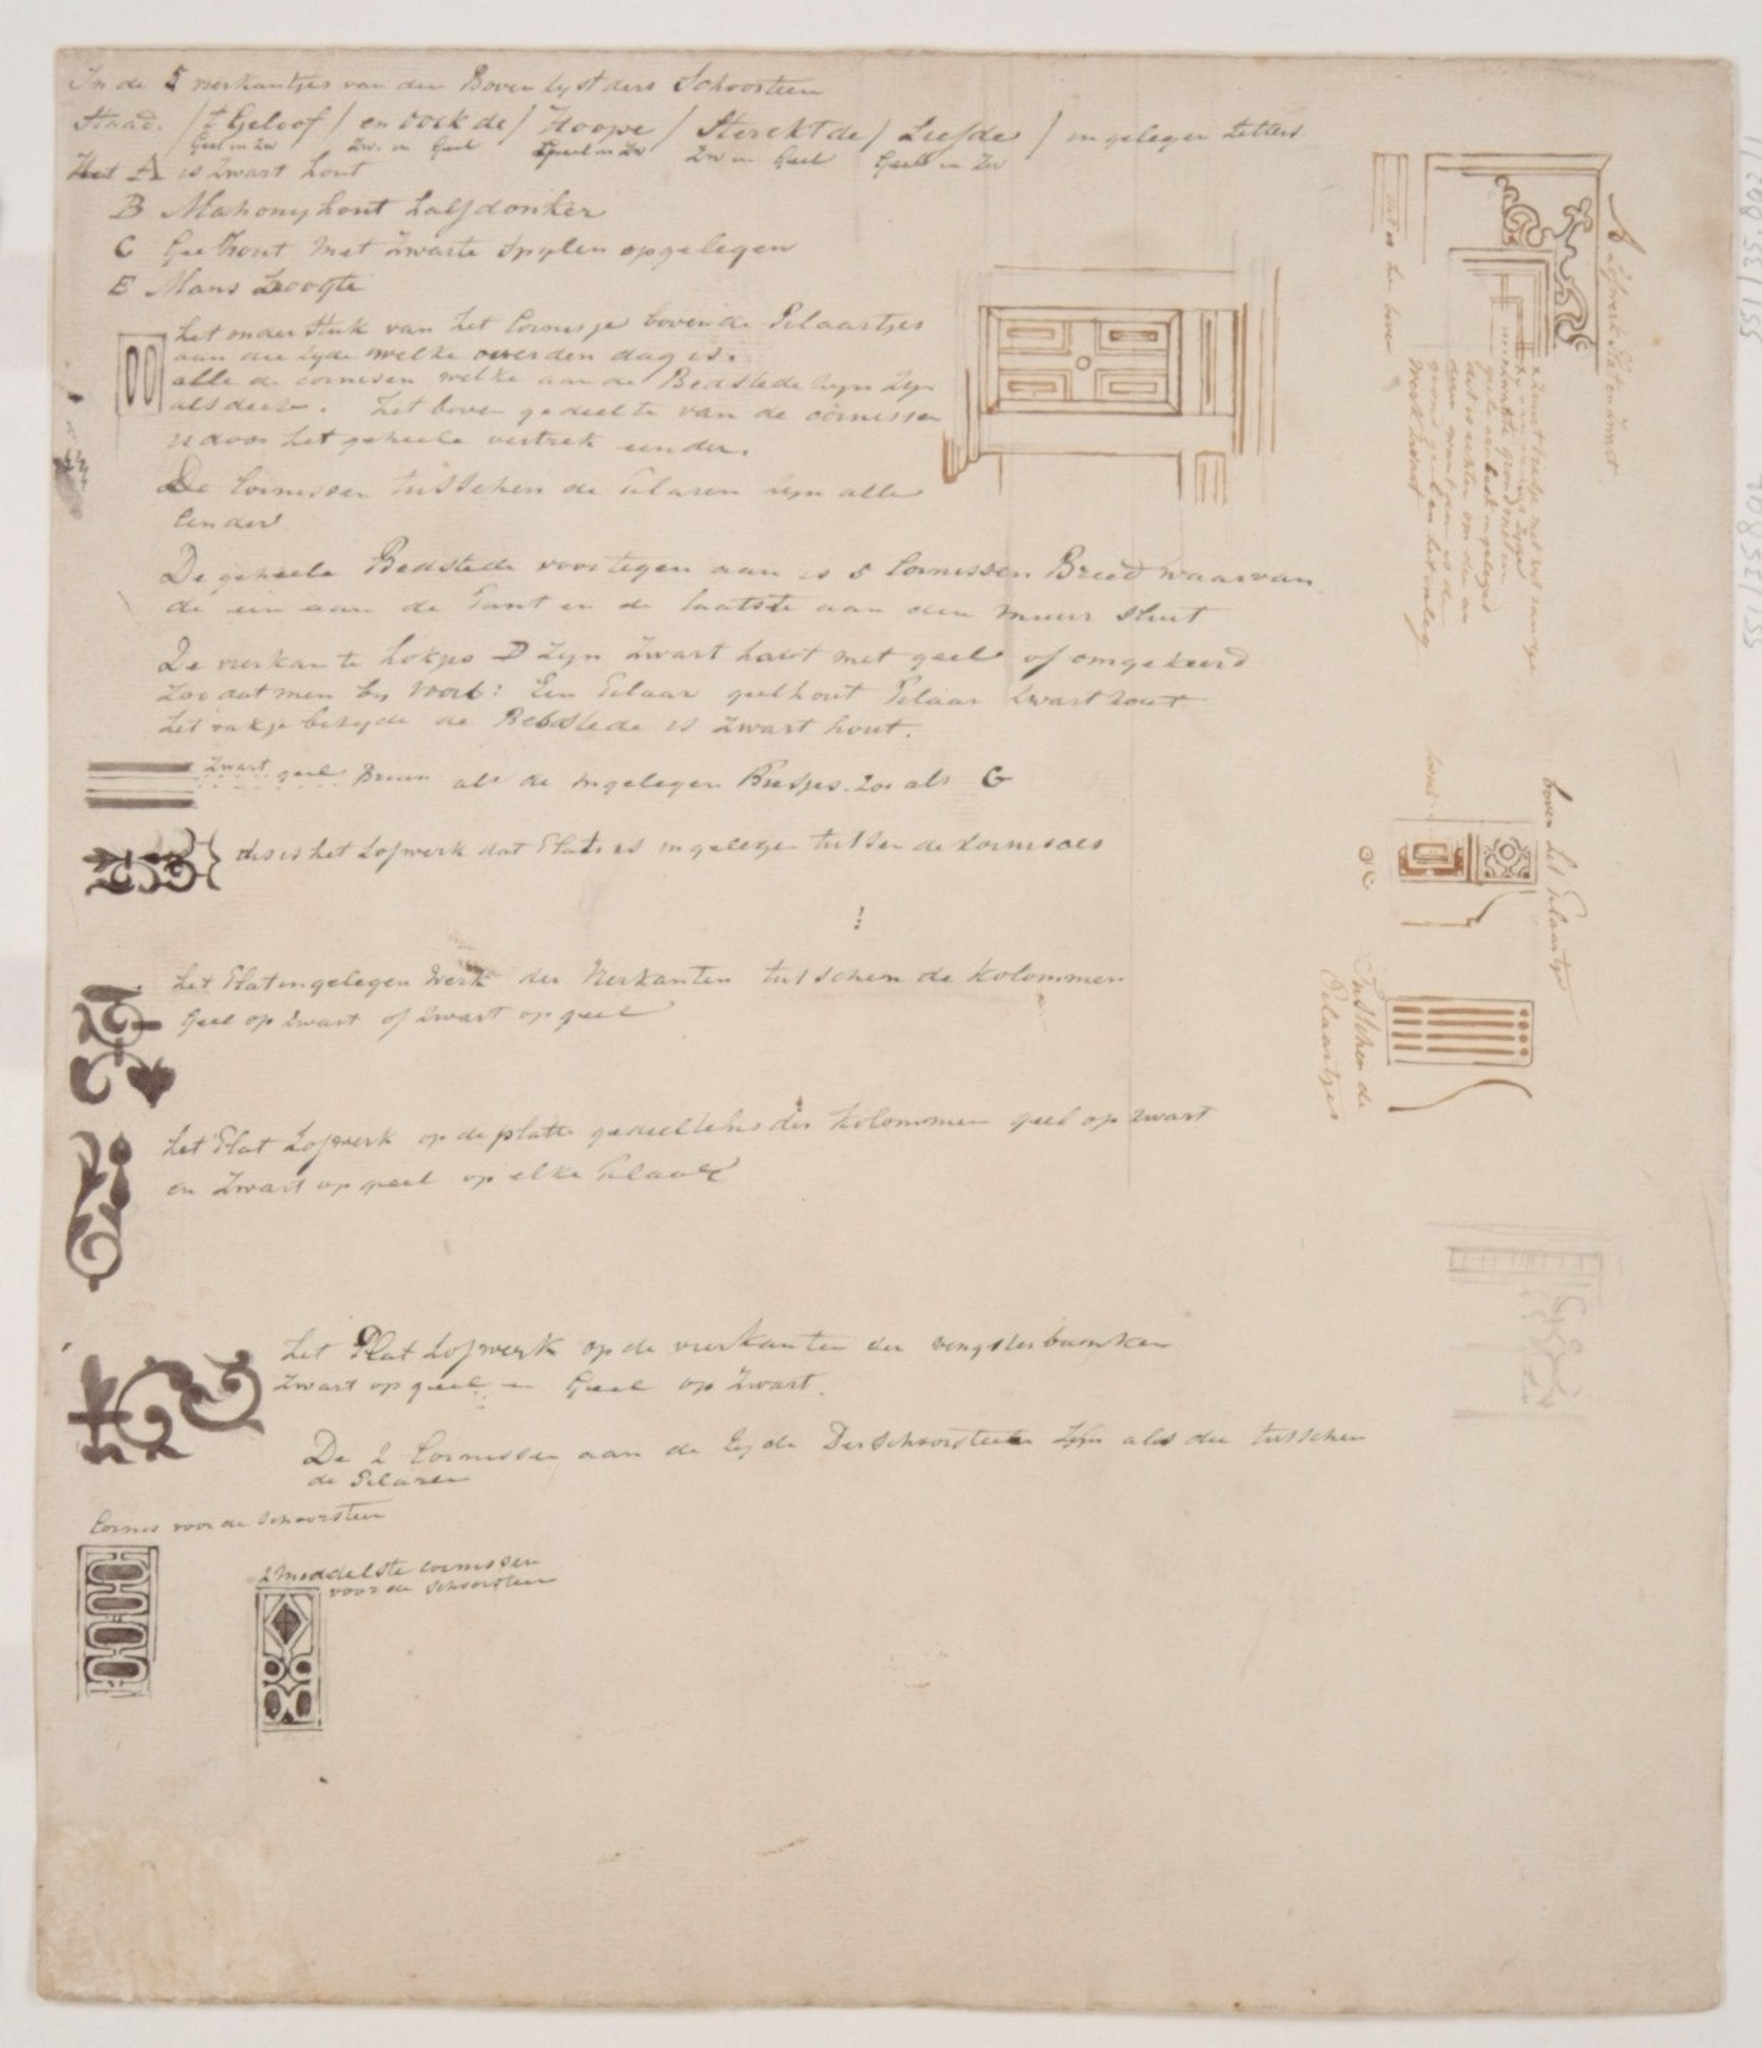 In de 5 vierkantjes van den Boven lyst ders Schoorsteen
Staad. / 't Geloof / en oock de / Hoope / Sterckt de / Liefde / ingelegen Letters
Geel in Zw Zw. in Geel Geel in Zw Zw in Geel Geel in Zw
Het A is Zwart hout
B Mahony hout halfdonker
C Geelhout met Zwarte Spylen opgelegen
E Mans Hoogte
het onder Stuk van het Cornisje boven de Pilaartjes
aan die zyde welke over den dag is.
alle de cornisen welke aan de Bedstede zyn zyn
als deese. het boven gedeelte van de cornissen
is door het geheele vertrek eender.
De Cornissen tusschen de Pilaren zyn alle
Eender
De geheele Bedstede voor tegen aan is 5 Cornissen Breed waarvan
de een aan de Kant en de laatste aan den muur sluit
De vierkante hokjes D zyn Zwart hout met geel of omgekeerd
Zoo dat men by Voorb: Een Pilaar geelhout Pilaar Zwart hout
het vakje bezyde de Bedstede is Zwart hout.
Zwart geel Bruin als de ingelegen Biesjes. zoo als G
dis is het Lofwerk dat Plat is ingelege tussen de Kornisses
het Plat ingelegen Werk der Vierkanten tusschen de Kolommen
Geel op Zwart of Zwart op geel
het Plat Lofwerk op de platte gedeeltens der Kolommen geel op Zwart
en Zwart op geel op elke Pilaar
het Plat Lofwerk op de vierkanten der vengsterbanken
Zwart op geel en Geel op Zwart.
De 2 Cornissen aan de Zyde Der Schoorsteen zyn als die tusschen
de Pilaren
Cornis voor de Schoorsteen
2 Middelste Cornissen
voor de Schoorsteen
boven het Pilaartje
Tusschen de
Pilaartjes
551/35.802/1
551/35802